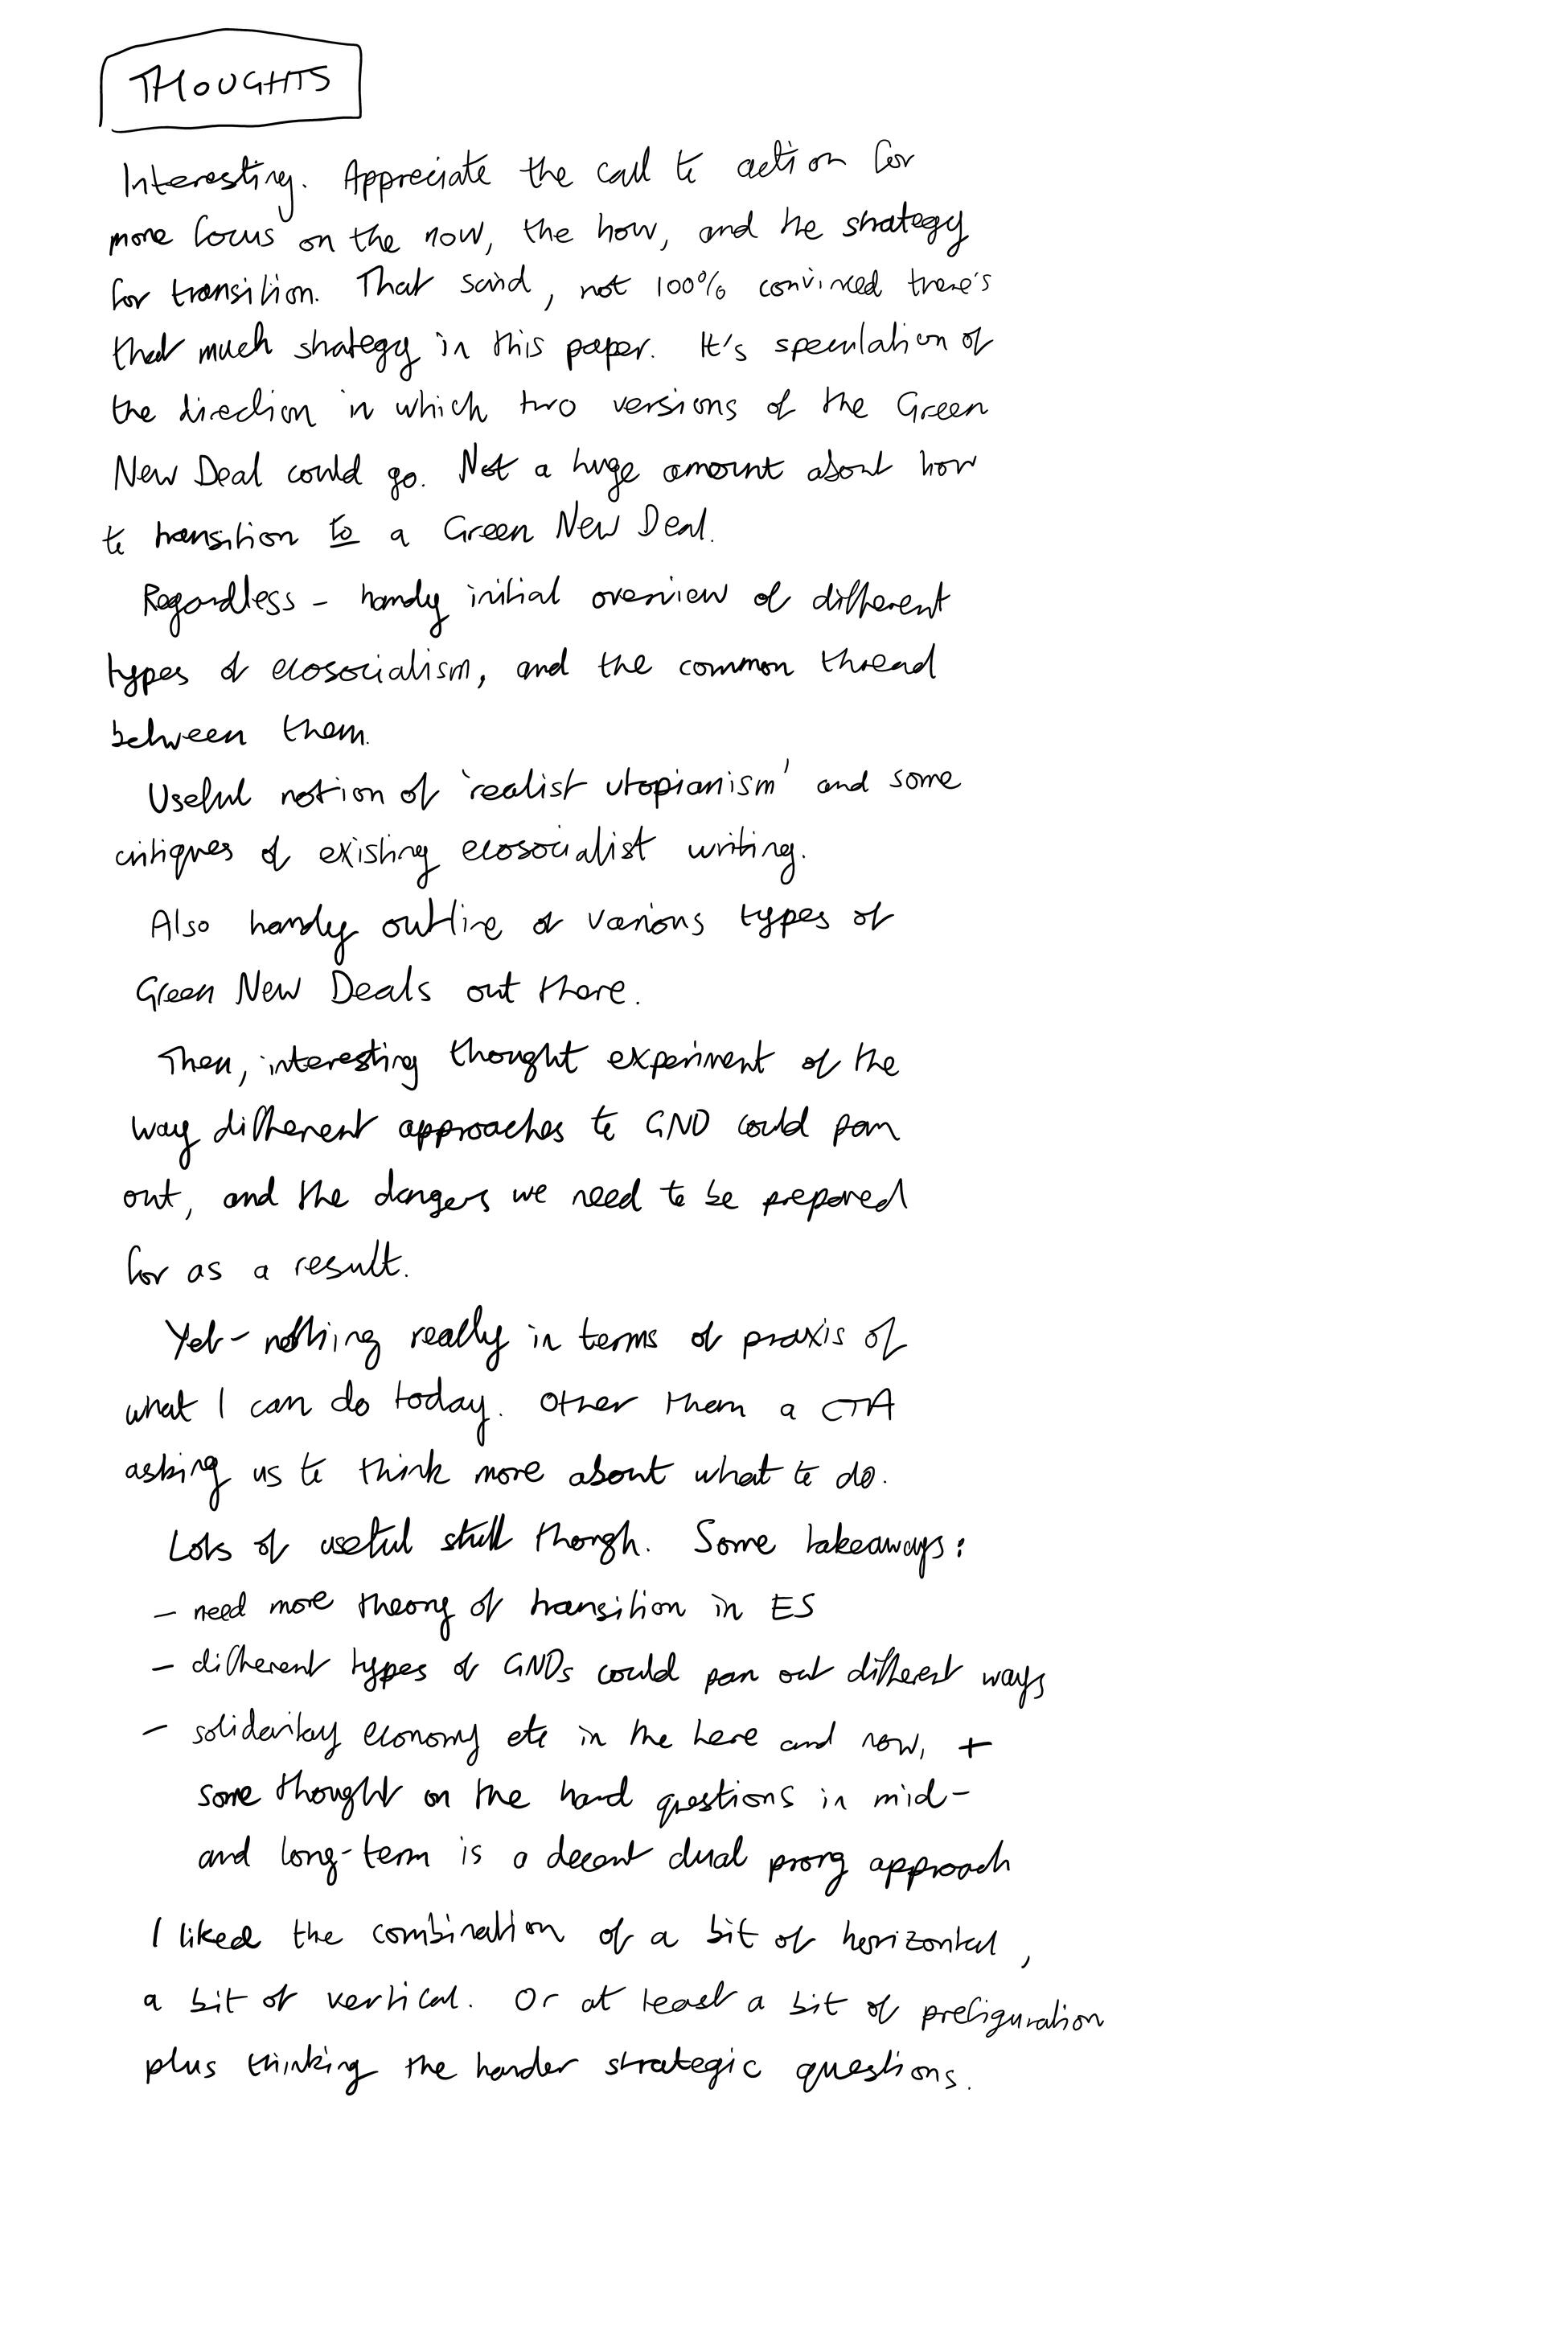 THOUGHTS
Interesting. Appreciate the call to action for
more focus on the now, the how, and the strategy
for transition. That said, not 100% convinced there's
that much strategy in this paper. It's speculation of
the direction in which two versions of the Green
New Deal could go. Not a huge amount about how
to transition to a Green New Deal.
Regardless - handy initial overview of different
types of ecosocialism, and the common thread
between them.
Useful notion of 'realist utopianism' and some
critiques of existing ecosocialist writing.
Also handy outline of various types of
Green New Deals out there.
Then, interesting thought experiment of the
way different approaches to GND could pan
out, and the dangers we need to be prepared
for as a result.
Yet - nothing really in terms of praxis of
what I can do today. Other than a CTA
asking us to think more about what to do.
Lots of useful stuff though. Some takeaways:
- need more theory of transition in ES
- different types of GNDs could pan out different ways
- solidarity economy etc in the here and now, +
some thought on the hard questions in mid-
and long-term is a decent dual prong approach
I liked the combination of a bit of horizontal,
a bit of vertical. Or at least a bit of prefiguration
plus thinking the harder strategic questions.